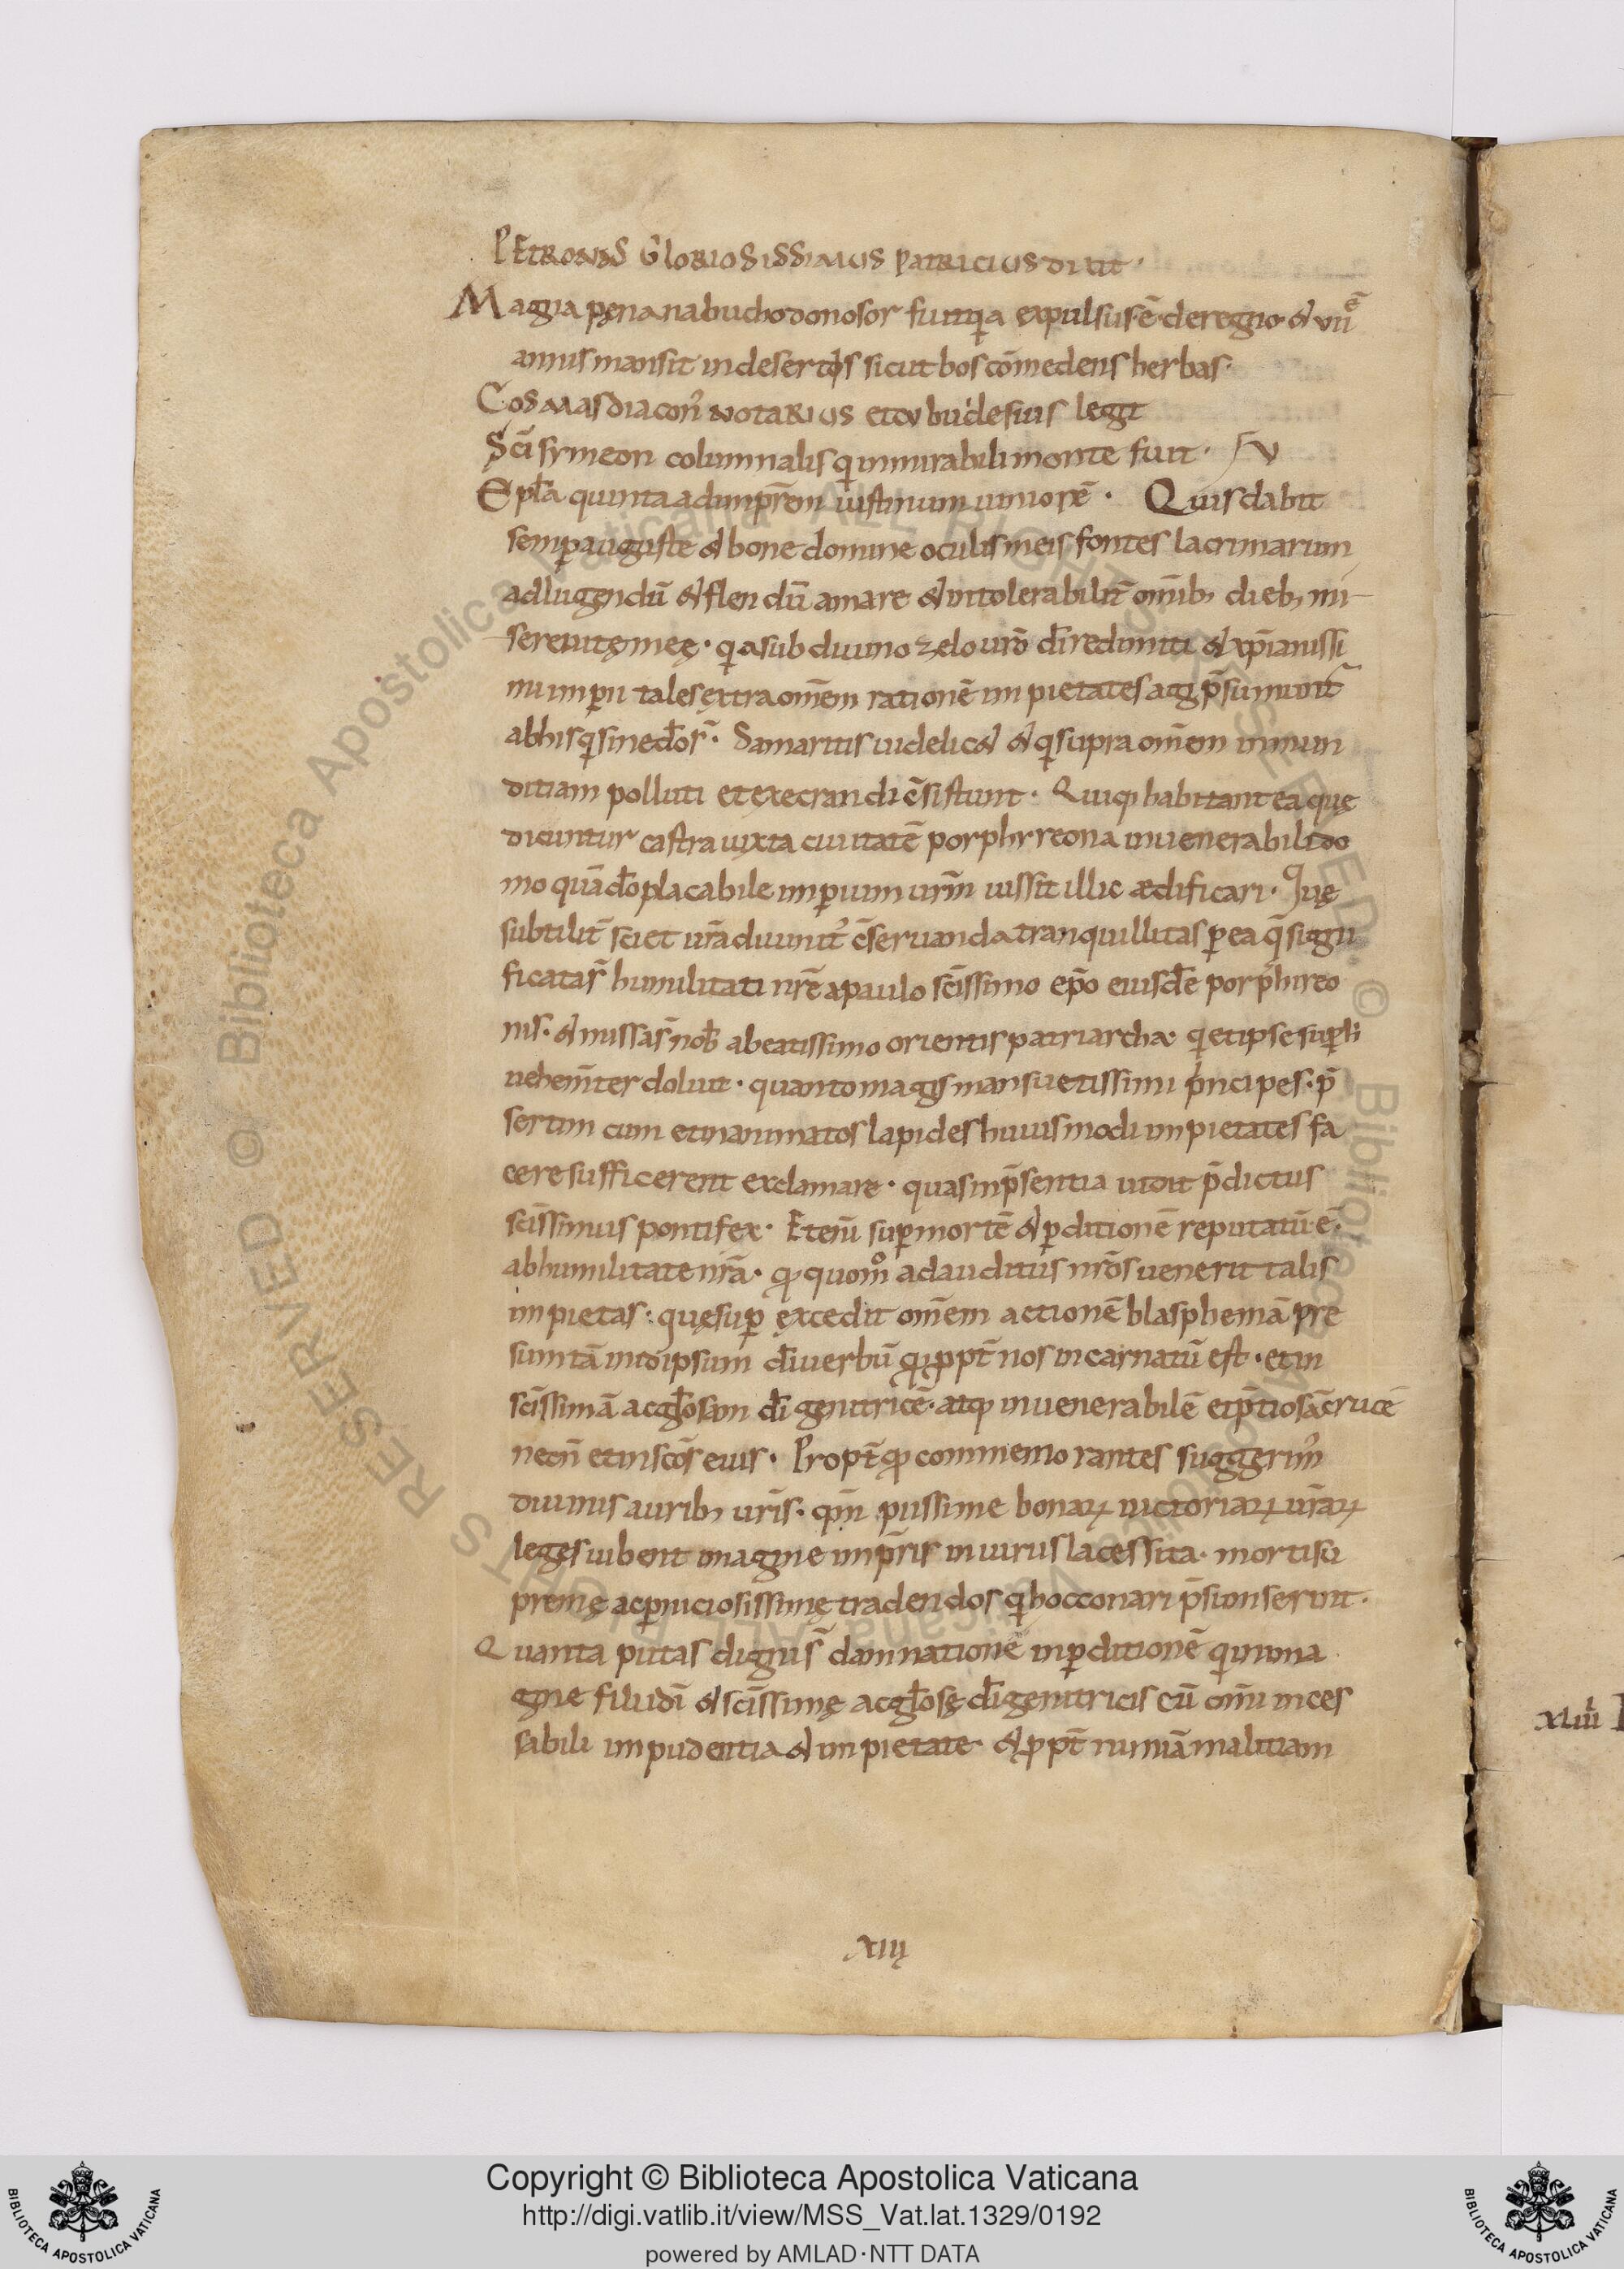 PETRONAS GLORIOSISSIMUS PATRICIUS DIXIT·
Magna pęna nabuchodonosor fuit qia expulsus ē de regno· & vii ē
annis mansit in desertis sicut bos cōmedens herbas·
Cosmas diacoñ NOTARIUS et cubucłesius legit
Sc̄i symeon columnalis qi in mirabili monte fuit· V
Epła quinta ad imp̄rem iustinum iuniorē· Quis dabit
semp auguste & bone domine oculis meis fontes lacrimarum
ad lugendū & flendū amare & intolerabilit̄ om̄ib; dieb; mi
seręuitę meę· qia sub diuino zelo ur̄o d̄i redimiti & xp̄ianissi
mi imperii tales extra om̄em rationē impietates agi p̄sumunt̄
ab his qi sine d̄o s̄· Samaritis uidelic& & qi supra om̄em inmun
ditiam polluti et execrandi c̄sistunt· Quiq; habitant ea quę
dicuntur castra iuxta ciuitatē porphyreona in uenerabili do
mo quā d̄o placabile imperium ur̄m iussit illic ædificari· Quę
subtilit̄ sciet ur̄a diuinit' c̄seruanda tranquillitas p ea q̄ signi
ficata s̄ humilitati nr̄ę a paulo sc̄issimo ep̄o eiusdē porphireo
nis· & missa s̄ nob̄ a beatissimo orientis patriarcha· qi et ipse sup hi
uehem̄ter doluit· quanto magis mansuetissimi principes· p̄
sertim cum et inanimatos lapides huiusmodi impietates fa
cere sufficerent exclamare· quas in p̄sentia uidit p̄dictus
sc̄issimus pontifex· Etenī sup mortē & pditionē reputatū ē·
ab humilitate nr̄a· qd quom̊ ad auditus nr̄os uenerit talis
impietas· quę sup excedit om̄em actionē blasphemā pre
sumtā in id ipsum d̄i uerbū qd ppt̄ nos incarnatū est· et in
sc̄issimā ac gł̄osam d̄i genitricē· atq; in uenerabilē et p̄tiosā crucē
necn̄ et in sc̄os eius· Propt̄ qd commemorantes suggerim'
diuinis aurib; ur̄is· qm̄ piissime bonaꝝ uictoriaꝝ ur̄aꝝ
leges iubent imagine imp̄ris inuirus lacessita· mortis su
premę ac pniciosissimę tradendos qi hoc conari p̄sumserint·
Quanta putas digni s̄ damnatione in pditionē qi in ima
gine filii d̄i & sc̄issimę ac gł̄osę d̄i genitricis cū om̄i inces
sabili impudentia & impietate· & ppt̄ nimiā malitiam
XIIII
XLIIII
Copyright © Biblioteca Apostolica Vaticana
http://digi.vatlib.it/view/MSS_Vat.lat.1329/0192
powered by AMLAD·NTT DATA
BIBLIOTECA APOSTOLICA VATICANA
BIBLIOTECA APOSTOLICA VATICANA